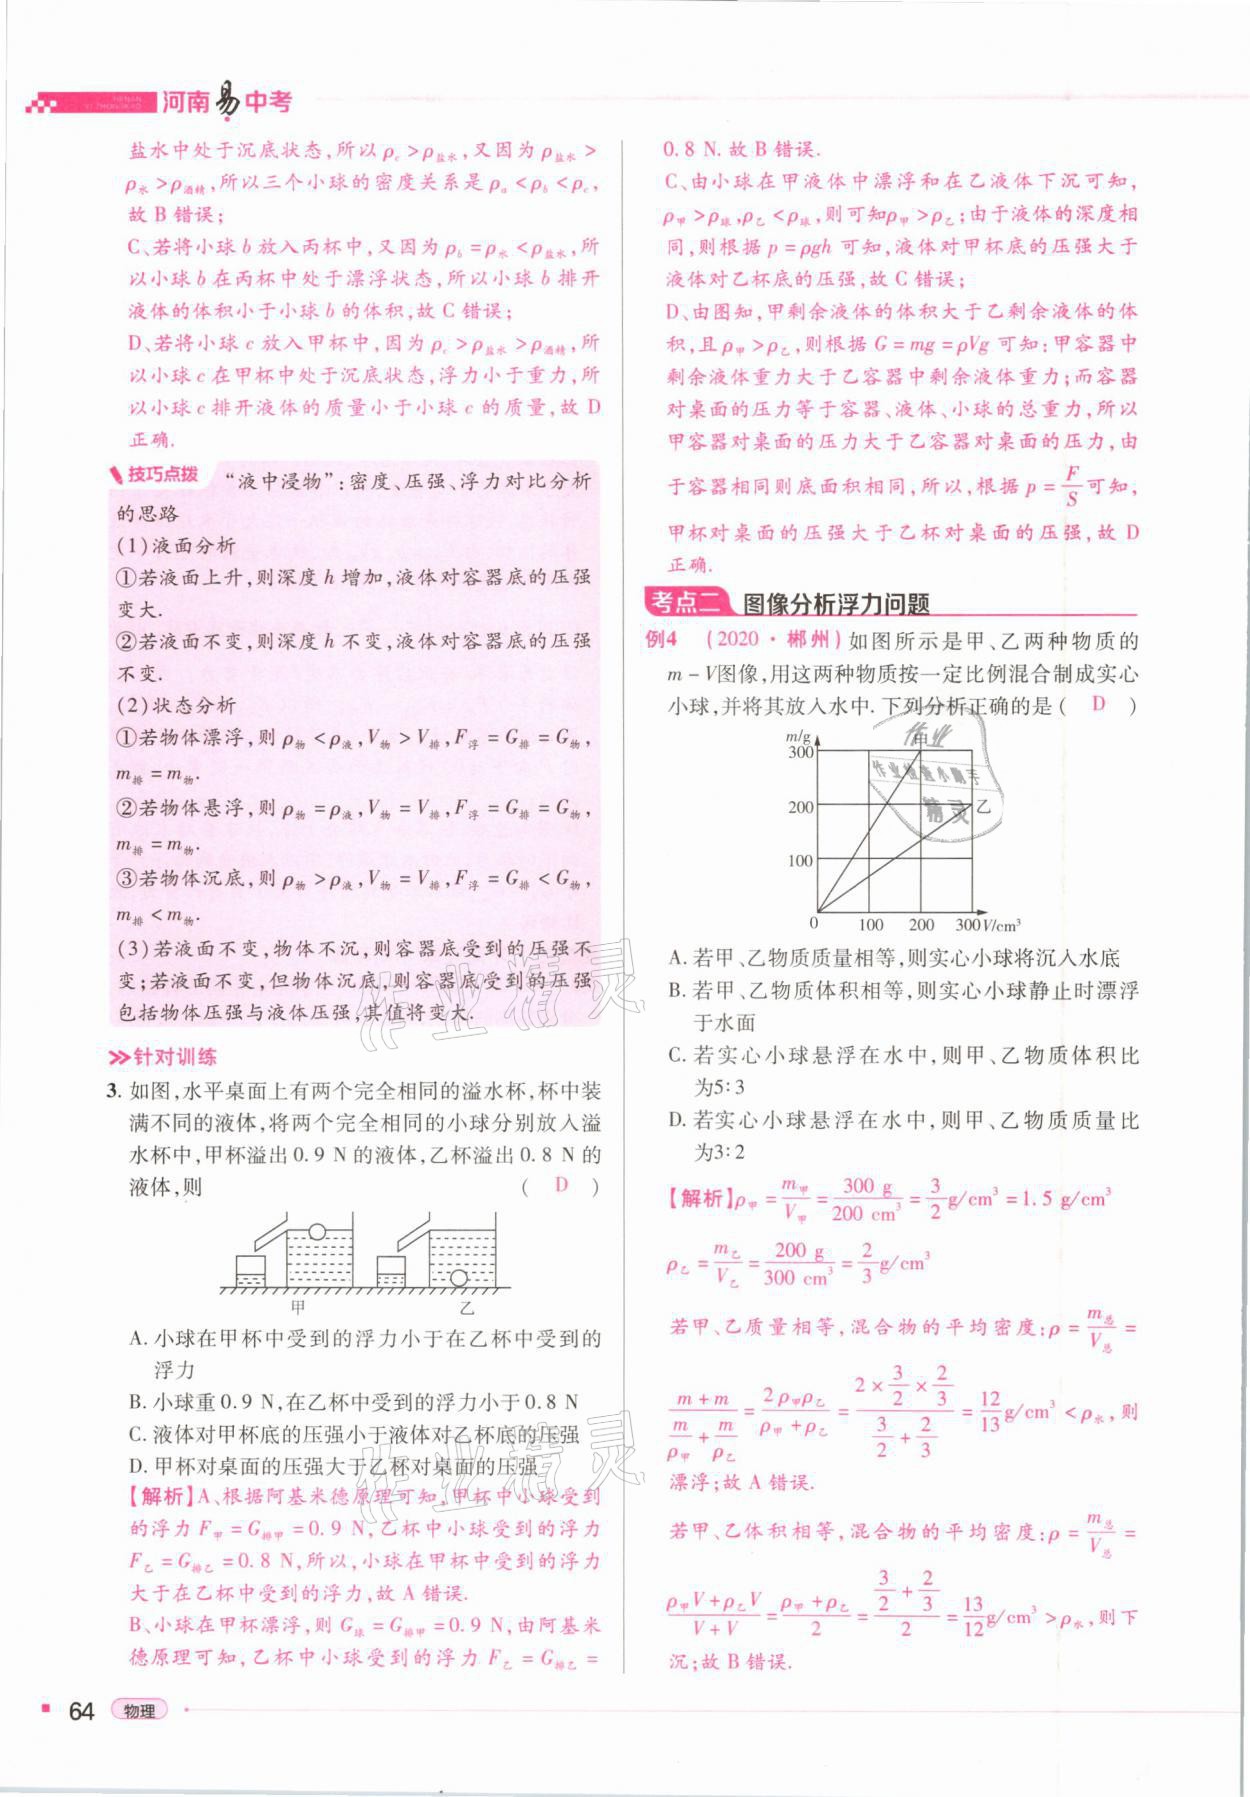 HENAN
YI ZHONGKAO
河南易中考
盐水中处于沉底状态,所以ρc>ρ盐水,又因为ρ盐水>
ρ水>ρ酒精,所以三个小球的密度关系是ρa<ρb<ρc,
故B错误;
C、若将小球b放入两杯中,又因为ρb=ρ水<ρ盐水,所
以小球b在两杯中处于漂浮状态,所以小球b排开
液体的体积小于小球b的体积,故C错误;
D、若将小球c放入甲杯中,因为ρc>ρ盐水>ρ酒精,所
以小球c在甲杯中处于沉底状态,浮力小于重力,所
以小球c排开液体的质量小于小球c的质量,故D
正确.
技巧点拨 “液中浸物”:密度、压强、浮力对比分析
的思路
(1)液面分析
①若液面上升,则深度h增加,液体对容器底的压强
变大.
②若液面不变,则深度h不变,液体对容器底的压强
不变.
(2)状态分析
①若物体漂浮,则ρ物<ρ液,V物>V排,F浮=G排=G物,
m排=m物.
②若物体悬浮,则ρ物=ρ液,V物=V排,F浮=G排=G物,
m排=m物.
③若物体沉底,则ρ物>ρ液,V物=V排,F浮=G排<G物,
m排<m物.
(3)若液面不变,物体不沉,则容器底受到的压强不
变;若液面不变,但物体沉底,则容器底受到的压强
包括物体压强与液体压强,其值将变大.
针对训练
3. 如图,水平桌面上有两个完全相同的溢水杯,杯中装
满不同的液体,将两个完全相同的小球分别放入溢
水杯中,甲杯溢出0.9 N的液体,乙杯溢出0.8 N的
液体,则 ( D )
甲 乙
A. 小球在甲杯中受到的浮力小于在乙杯中受到的
浮力
B. 小球重0.9 N,在乙杯中受到的浮力小于0.8 N
C. 液体对甲杯底的压强小于液体对乙杯底的压强
D. 甲杯对桌面的压强大于乙杯对桌面的压强
【解析】A、根据阿基米德原理可知,甲杯中小球受到
的浮力F甲=G排甲=0.9 N,乙杯中小球受到的浮力
F乙=G排乙=0.8 N,所以,小球在甲杯中受到的浮力
大于在乙杯中受到的浮力,故A错误.
B、小球在甲杯漂浮,则G球=G排甲=0.9 N,由阿基米
德原理可知,乙杯中小球受到的浮力F乙=G排乙=
0.8 N. 故B错误.
C、由小球在甲液体中漂浮和在乙液体下沉可知,
ρ甲>ρ球,ρ乙<ρ球,则可知ρ甲>ρ乙;由于液体的深度相
同,则根据p=ρgh可知,液体对甲杯底的压强大于
液体对乙杯底的压强,故C错误;
D、由图知,甲剩余液体的体积大于乙剩余液体的体
积,且ρ甲>ρ乙,则根据G=mg=ρVg可知:甲容器中
剩余液体重力大于乙容器中剩余液体重力;而容器
对桌面的压力等于容器、液体、小球的总重力,所以
甲容器对桌面的压力大于乙容器对桌面的压力,由
于容器相同则底面积相同,所以,根据p=F/S可知,
甲杯对桌面的压强大于乙杯对桌面的压强,故D
正确.
考点二 图像分析浮力问题
例4 (2020·郴州)如图所示是甲、乙两种物质的
m-V图像,用这两种物质按一定比例混合制成实心
小球,并将其放入水中.下列分析正确的是( D )
m/g
300
甲
200
乙
100
0 100 200 300 V/cm³
作业
作业检查小助手
精灵
A. 若甲、乙物质质量相等,则实心小球将沉入水底
B. 若甲、乙物质体积相等,则实心小球静止时漂浮
于水面
C. 若实心小球悬浮在水中,则甲、乙物质体积比
为5∶3
D. 若实心小球悬浮在水中,则甲、乙物质质量比
为3∶2
【解析】ρ甲=m甲/V甲=300 g/200 cm³=3/2 g/cm³=1.5 g/cm³
ρ乙=m乙/V乙=200 g/300 cm³=2/3 g/cm³
若甲、乙质量相等,混合物的平均密度:ρ=m总/V总=
(m+m)/(m/ρ甲+m/ρ乙)=2ρ甲ρ乙/(ρ甲+ρ乙)=(2×3/2×2/3)/(3/2+2/3)=12/13 g/cm³<ρ水,则
漂浮;故A错误.
若甲、乙体积相等,混合物的平均密度:ρ=m总/V总=
(ρ甲V+ρ乙V)/(V+V)=(ρ甲+ρ乙)/2=(3/2+2/3)/2=13/12 g/cm³>ρ水,则下
沉;故B错误.
作业精灵
作业精灵
64 物理